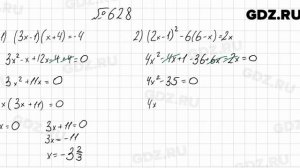 GDZ.RU
№628
1) (3x-1)(x+4)=-4
3x²-x+12x-4+4=0
3x²+11x=0
x(3x+11)=0
x=0 3x+11=0
3x=-11
x=-3⅔
2) (2x-1)²-6(6-x)=2x
4x²-4x+1-36+6x-2x=0
4x²-35=0
4x
GDZ.RU